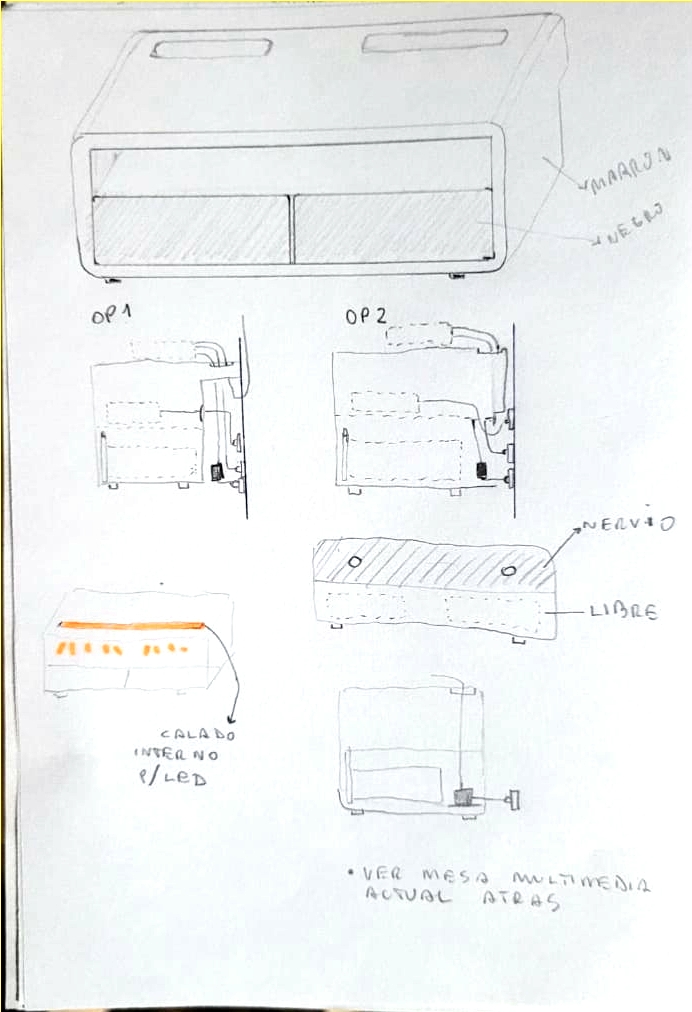 MARRÓN
NEGRO
OP1
OP2
NERVIO
LIBRE
CALADO
INTERNO
P/LED
• VER MESA MULTIMEDIA
ACTUAL ATRAS